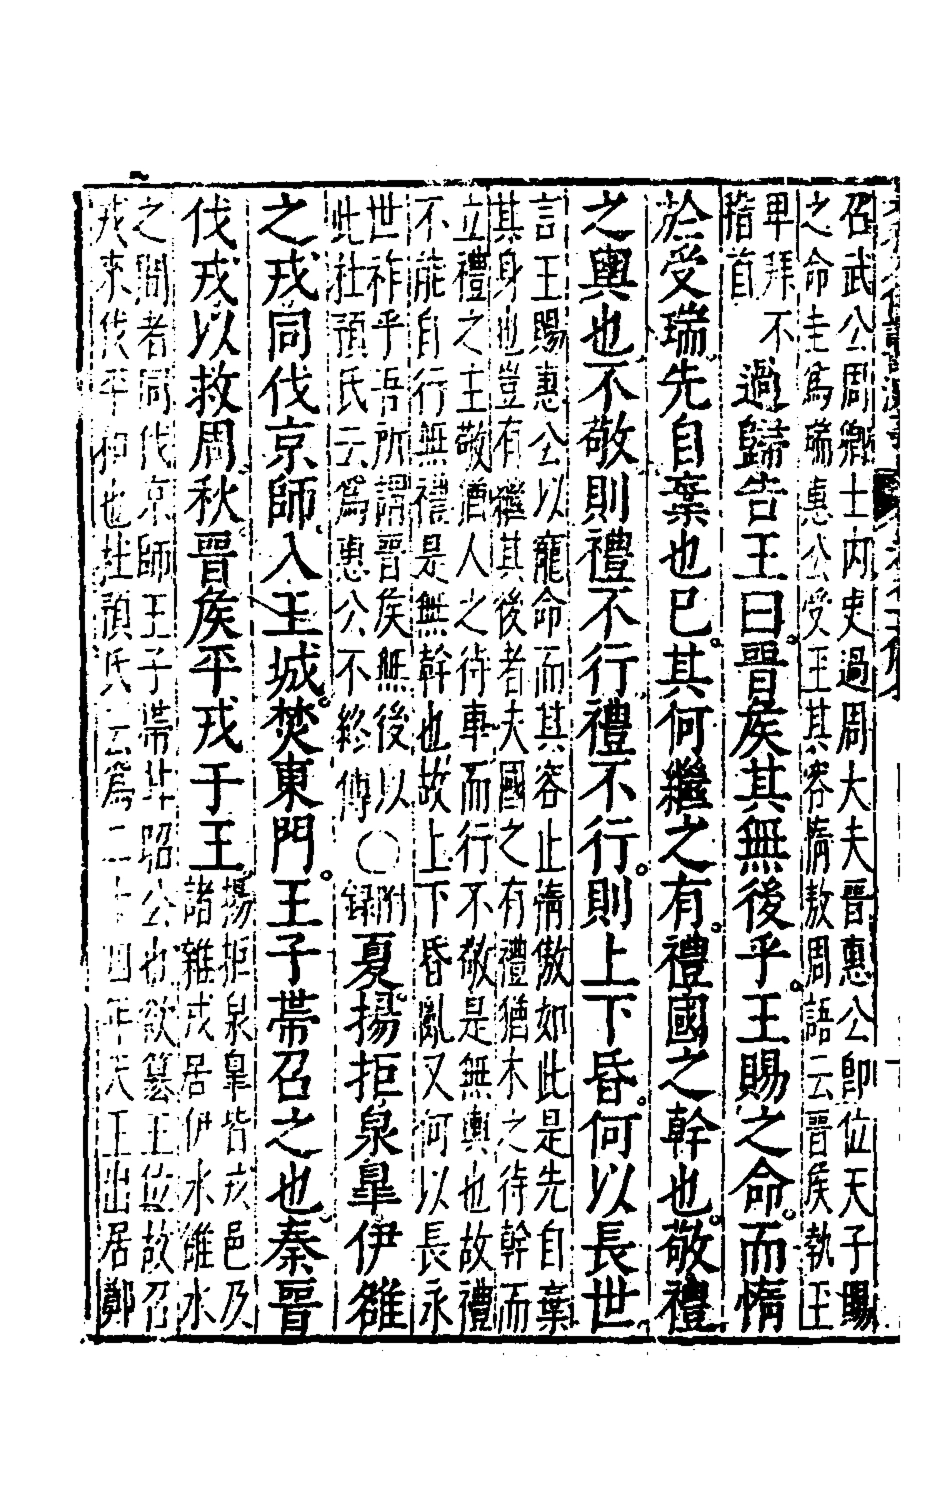 召武公周卿士内史過周大夫晉惠公卽位天子賜
之命圭爲瑞惠公受王其容惰敖周語云晉矦執玉
卑拜不
稽首
過歸告王曰晉矦其無後乎王賜之命而惰
於受瑞先自棄也已其何繼之有禮國之幹也敬禮
之輿也不敬則禮不行禮不行則上下昏何以長世
言王賜惠公以寵命而其容止惰傲如此是先自棄
其身也豈有繼其後者夫國之有禮猶木之待幹而
立禮之主敬猶人之待車而行不敬是無輿也故禮
不能自行無禮是無幹也故上下昏亂又何以長永
世祚乎吾所謂晉矦無後以
此杜預氏云爲惠公不終傳
○
附
録
夏揚拒泉臯伊雒
之戎同伐京師入王城焚東門王子帶召之也秦晉
伐戎以救周秋晉矦平戎于王
揚拒泉臯皆戎邑及
諸雜戎居伊水雒水
之閒者同伐京師王子帶卽昭公也欲簒王位故召
戎來伐平和也杜預氏云爲二十四年天王出居鄭